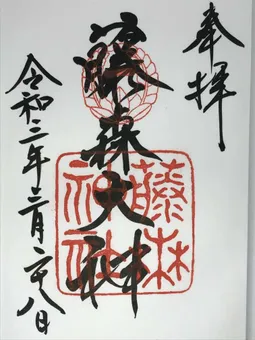 奉拝
藤森大神
藤森神社
令和二年二月二十八日